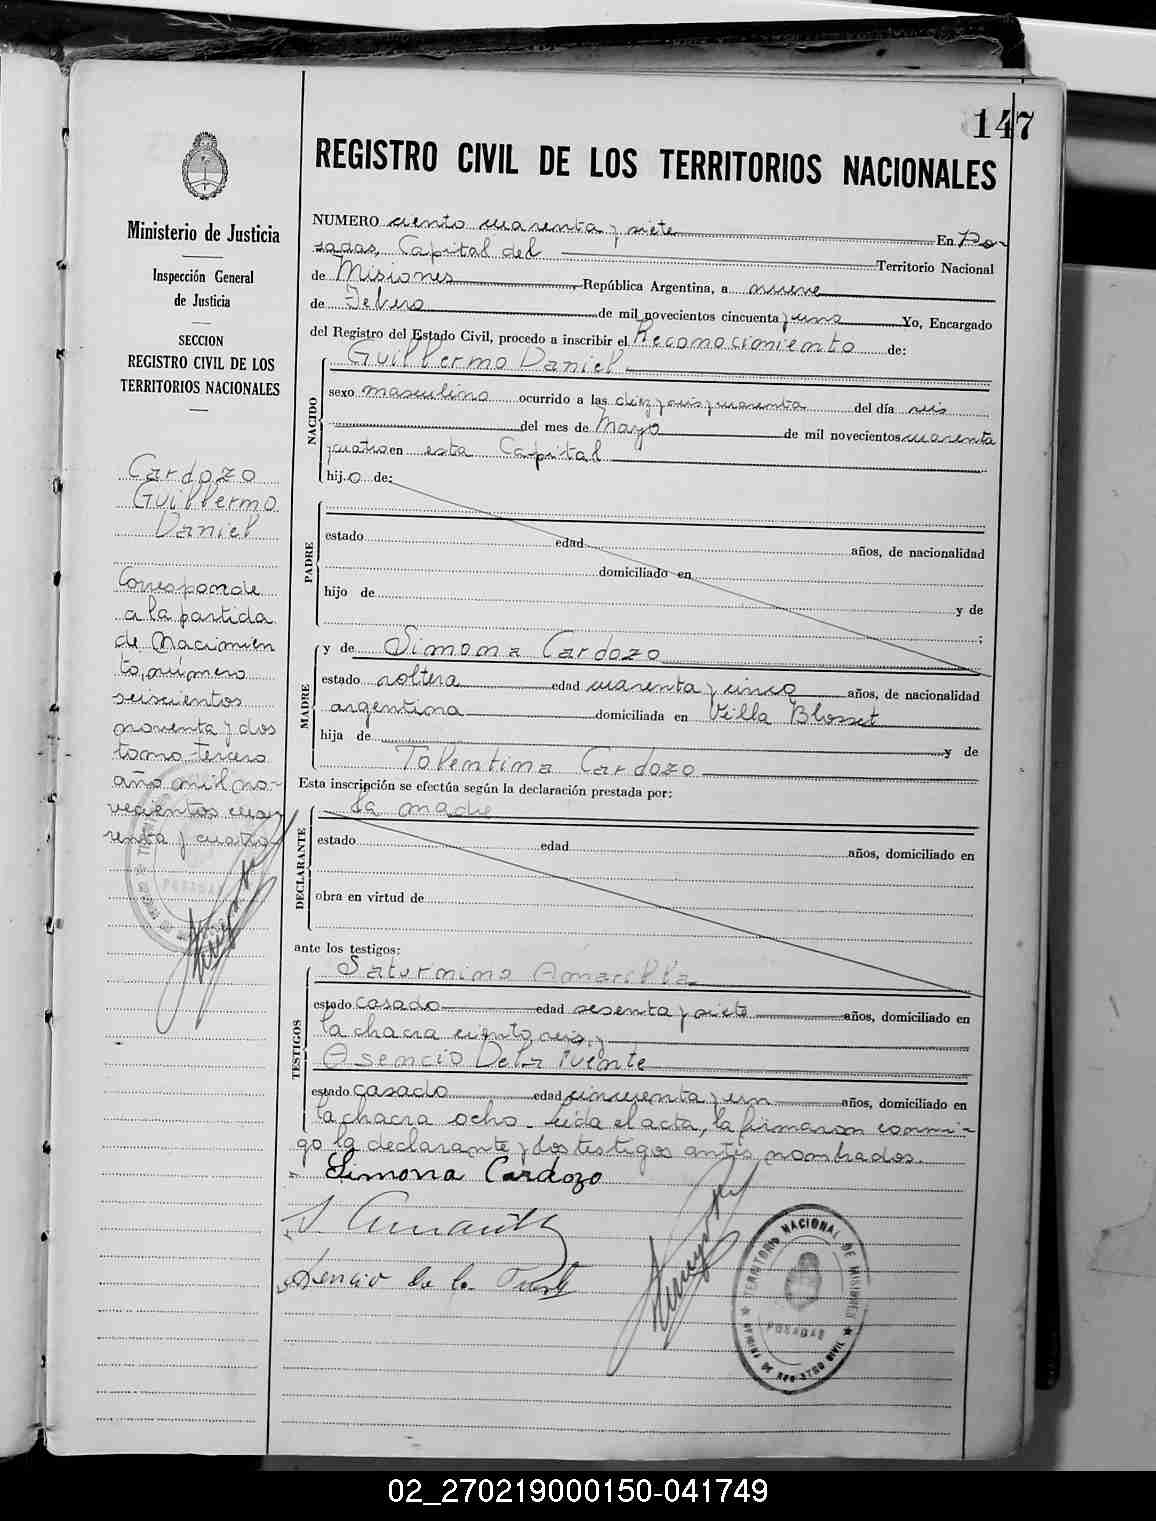 147
REGISTRO CIVIL DE LOS TERRITORIOS NACIONALES
Ministerio de Justicia
Inspección General
de Justicia
SECCION
REGISTRO CIVIL DE LOS
TERRITORIOS NACIONALES
Cardozo
Guillermo
Daniel
Corresponde
a la partida
de Nacimien
to, número
seiscientos
noventa y dos
tomo tercero
año mil no-
vecientos cua-
renta y cuatro
NUMERO ciento cuarenta y siete En Po-
sadas, Capital del Territorio Nacional
de Misiones, República Argentina, a nueve
de Febrero de mil novecientos cincuenta y uno Yo, Encargado
del Registro del Estado Civil, procedo a inscribir el Reconocimiento de:
Guillermo Daniel
NACIDO
sexo masculino ocurrido a las diez y seis y cuarenta del día seis
del mes de Mayo de mil novecientos cuarenta
y cuatro en esta Capital
hijo de:
PADRE
estado edad años, de nacionalidad
domiciliado en
hijo de y de
;
MADRE
y de Simona Cardozo
estado soltera edad cuarenta y cinco años, de nacionalidad
argentina domiciliada en Villa Blosset
hija de y de
Tolentina Cardozo
Esta inscripción se efectúa según la declaración prestada por:
la madre
DECLARANTE
estado edad años, domiciliado en
obra en virtud de
ante los testigos:
TESTIGOS
Saturnino Amarilla
estado casado edad sesenta y siete años, domiciliado en
la chacra ciento seis, y
Asencio De la Puente
estado casado edad cincuenta y un años, domiciliado en
la chacra ocho - Leída el acta, la firmaron conmi-
go la declarante y dos testigos antes nombrados.
Simona Cardozo
S. Amarilla
Asencio de la Puente
TERRITORIO NACIONAL DE MISIONES
POSADAS
OFICINA DE REGISTRO CIVIL
02_270219000150-041749